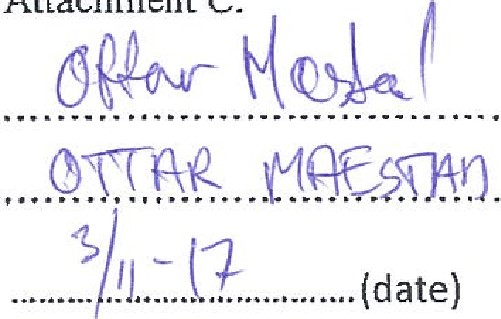 Attachment C.
Ottar Mæstad
OTTAR MAESTAD
3/11-17
(date)